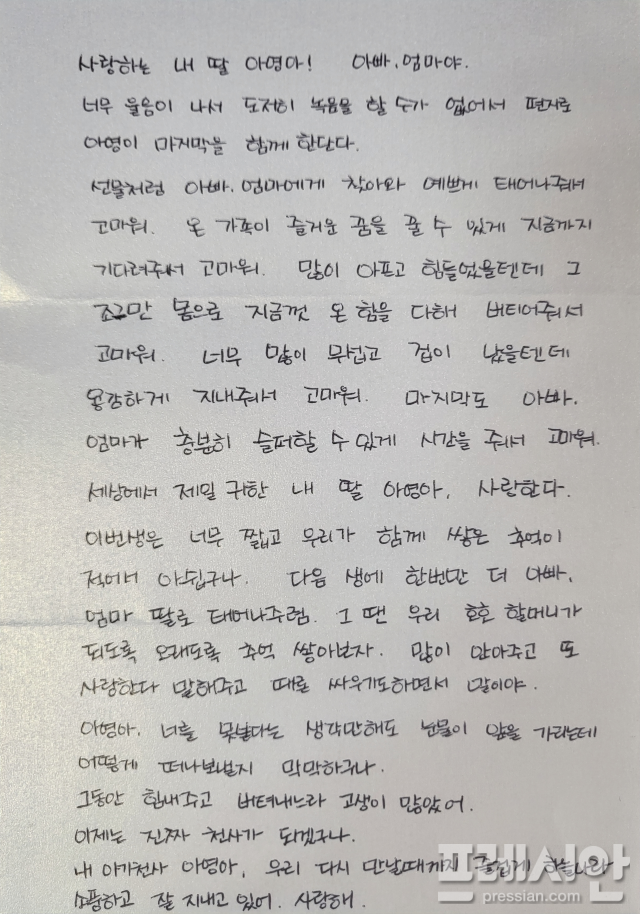 사랑하는 내 딸 아영아! 아빠, 엄마야.
너무 울음이 나서 도저히 녹음을 할 수가 없어서 편지로
아영이 마지막을 함께 한단다.
선물처럼 아빠, 엄마에게 찾아와 예쁘게 태어나줘서
고마워. 온 가족이 즐거운 꿈을 꿀 수 있게 지금까지
기다려주서 고마워. 많이 아프고 힘들었을텐데 그
조그만 몸으로 지금껏 온 힘을 다해 버티어줘서
고마워. 너무 많이 무섭고 겁이 났을텐데
용감하게 지내줘서 고마워. 마지막도 아빠,
엄마가 충분히 슬퍼할 수 있게 시간을 줘서 고마워.
세상에서 제일 귀한 내 딸 아영아, 사랑한다.
이번생은 너무 짧고 우리가 함께 쌓은 추억이
적어서 아쉽구나. 다음 생에 한번만 더 아빠,
엄마 딸로 태어나주렴. 그 땐 우리 호호 할머니가
되도록 오래도록 추억 쌓아보자. 많이 안아주고 또
사랑한다 말해주고 때로 싸우기도하면서 말이야.
아영아, 너를 못본다는 생각만해도 눈물이 앞을 가리는데
어떻게 떠나보낼지 막막하구나.
그동안 힘내주고 버텨내느라 고생이 많았어.
이제는 진짜 천사가 되겠구나.
내 아가천사 아영아, 우리 다시 만날때까지 즐겁게 하늘나라
소풍하고 잘 지내고 있어. 사랑해.
프레시안
pressian.com